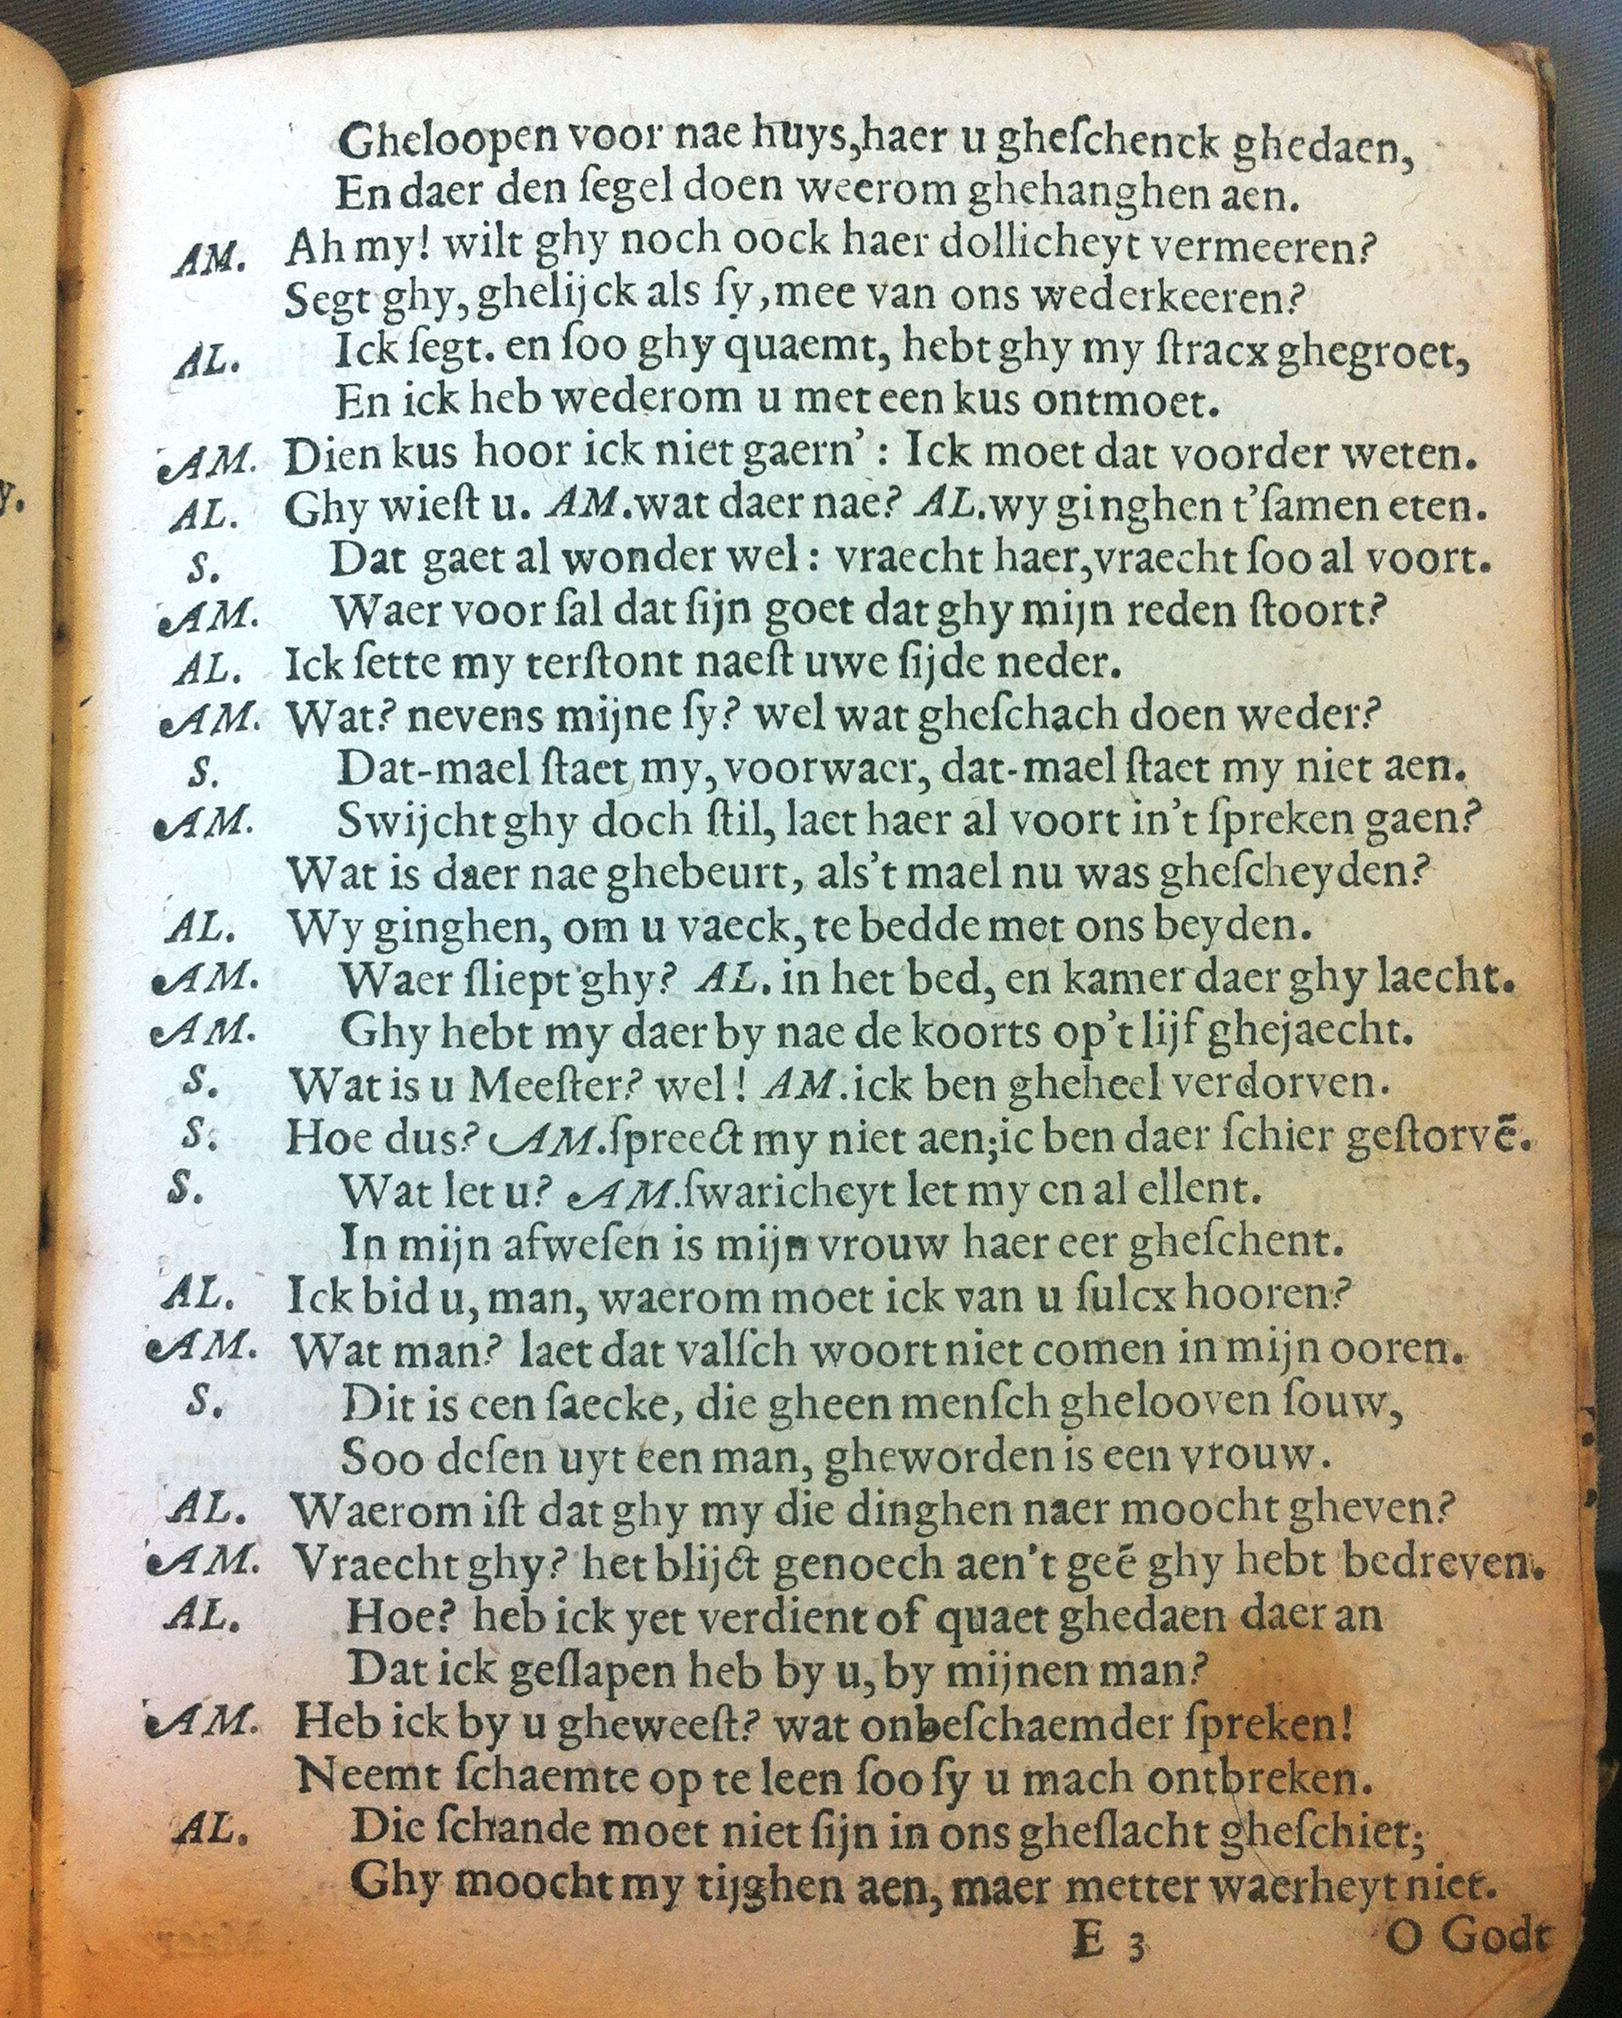 Gheloopen voor nae huys,haer u gheſchenck ghedaen,
En daer den ſegel doen weerom ghehanghen aen.
AM. Ah my! wilt ghy noch oock haer dollicheyt vermeeren?
Segt ghy, ghelijck als ſy, mee van ons wederkeeren?
AL. Ick ſegt. en ſoo ghy quaemt, hebt ghy my ſtracx ghegroet,
En ick heb wederom u met een kus ontmoet.
AM. Dien kus hoor ick niet gaern' : Ick moet dat voorder weten.
AL. Ghy wieſt u. AM.wat daer nae? AL.wy ginghen t'ſamen eten.
S. Dat gaet al wonder wel : vraecht haer,vraecht ſoo al voort.
AM. Waer voor ſal dat ſijn goet dat ghy mijn reden ſtoort?
AL. Ick ſette my terſtont naeſt uwe ſijde neder.
AM. Wat? nevens mijne ſy? wel wat gheſchach doen weder?
S. Dat-mael ſtaet my, voorwaer, dat-mael ſtaet my niet aen.
AM. Swijcht ghy doch ſtil, laet haer al voort in't ſpreken gaen?
Wat is daer nae ghebeurt, als't mael nu was gheſcheyden?
AL. Wy ginghen, om u vaeck, te bedde met ons beyden.
AM. Waer ſliept ghy? AL. in het bed, en kamer daer ghy laecht.
AM. Ghy hebt my daer by nae de koorts op't lijf ghejaecht.
S. Wat is u Meeſter? wel! AM.ick ben gheheel verdorven.
S. Hoe dus? AM.ſpreect my niet aen;ic ben daer ſchier geſtorvē.
S. Wat let u? AM.ſwaricheyt let my en al ellent.
In mijn afweſen is mijn vrouw haer eer gheſchent.
AL. Ick bid u, man, waerom moet ick van u ſulcx hooren?
AM. Wat man? laet dat valſch woort niet comen in mijn ooren.
S. Dit is een ſaecke, die gheen menſch ghelooven ſouw,
Soo deſen uyt een man, gheworden is een vrouw.
AL. Waerom iſt dat ghy my die dinghen naer moocht gheven?
AM. Vraecht ghy? het blijct genoech aen't geē ghy hebt bedreven.
AL. Hoe? heb ick yet verdient of quaet ghedaen daer an
Dat ick geſlapen heb by u, by mijnen man?
AM. Heb ick by u gheweeſt? wat onbeſchaemder ſpreken!
Neemt ſchaemte op te leen ſoo ſy u mach ontbreken.
AL. Die ſchande moet niet ſijn in ons gheſlacht gheſchiet;
Ghy moocht my tijghen aen, maer metter waerheyt niet.
E 3 O Godt